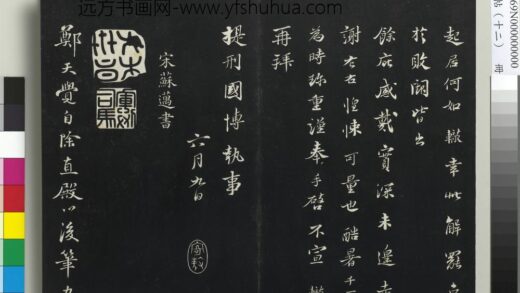 远方书画网-www.yfshuhua.com
起居何如轍幸此解罷
於敗闕皆出
餘庇感戴實深未遑走
謝左右惶悚可量也酷暑千
為時珍重謹奉手啓不宣轍
再拜
提刑國博執事
六月九日
宋蘇邁書
鄭天覺自除直殿以後筆
帖(十二)